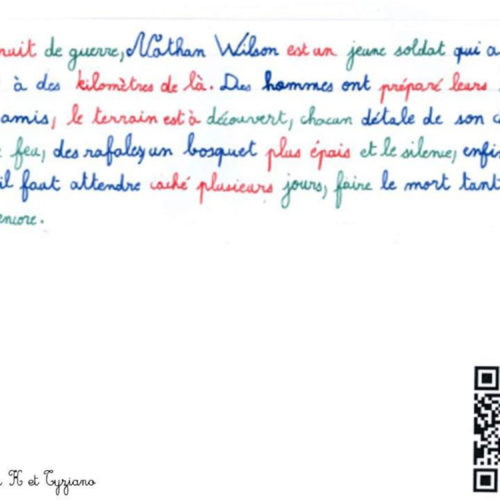 nuit de guerre, Nathan Wilson est un jeune soldat qui a
à des kilomètres de là. Des hommes ont préparé leurs
amis, le terrain est à découvert, chacun détale de son
feu, des rafales, un bosquet plus épais et le silence, enfin
il faut attendre caché plusieurs jours, faire le mort tant
encore.
H et Tyziano